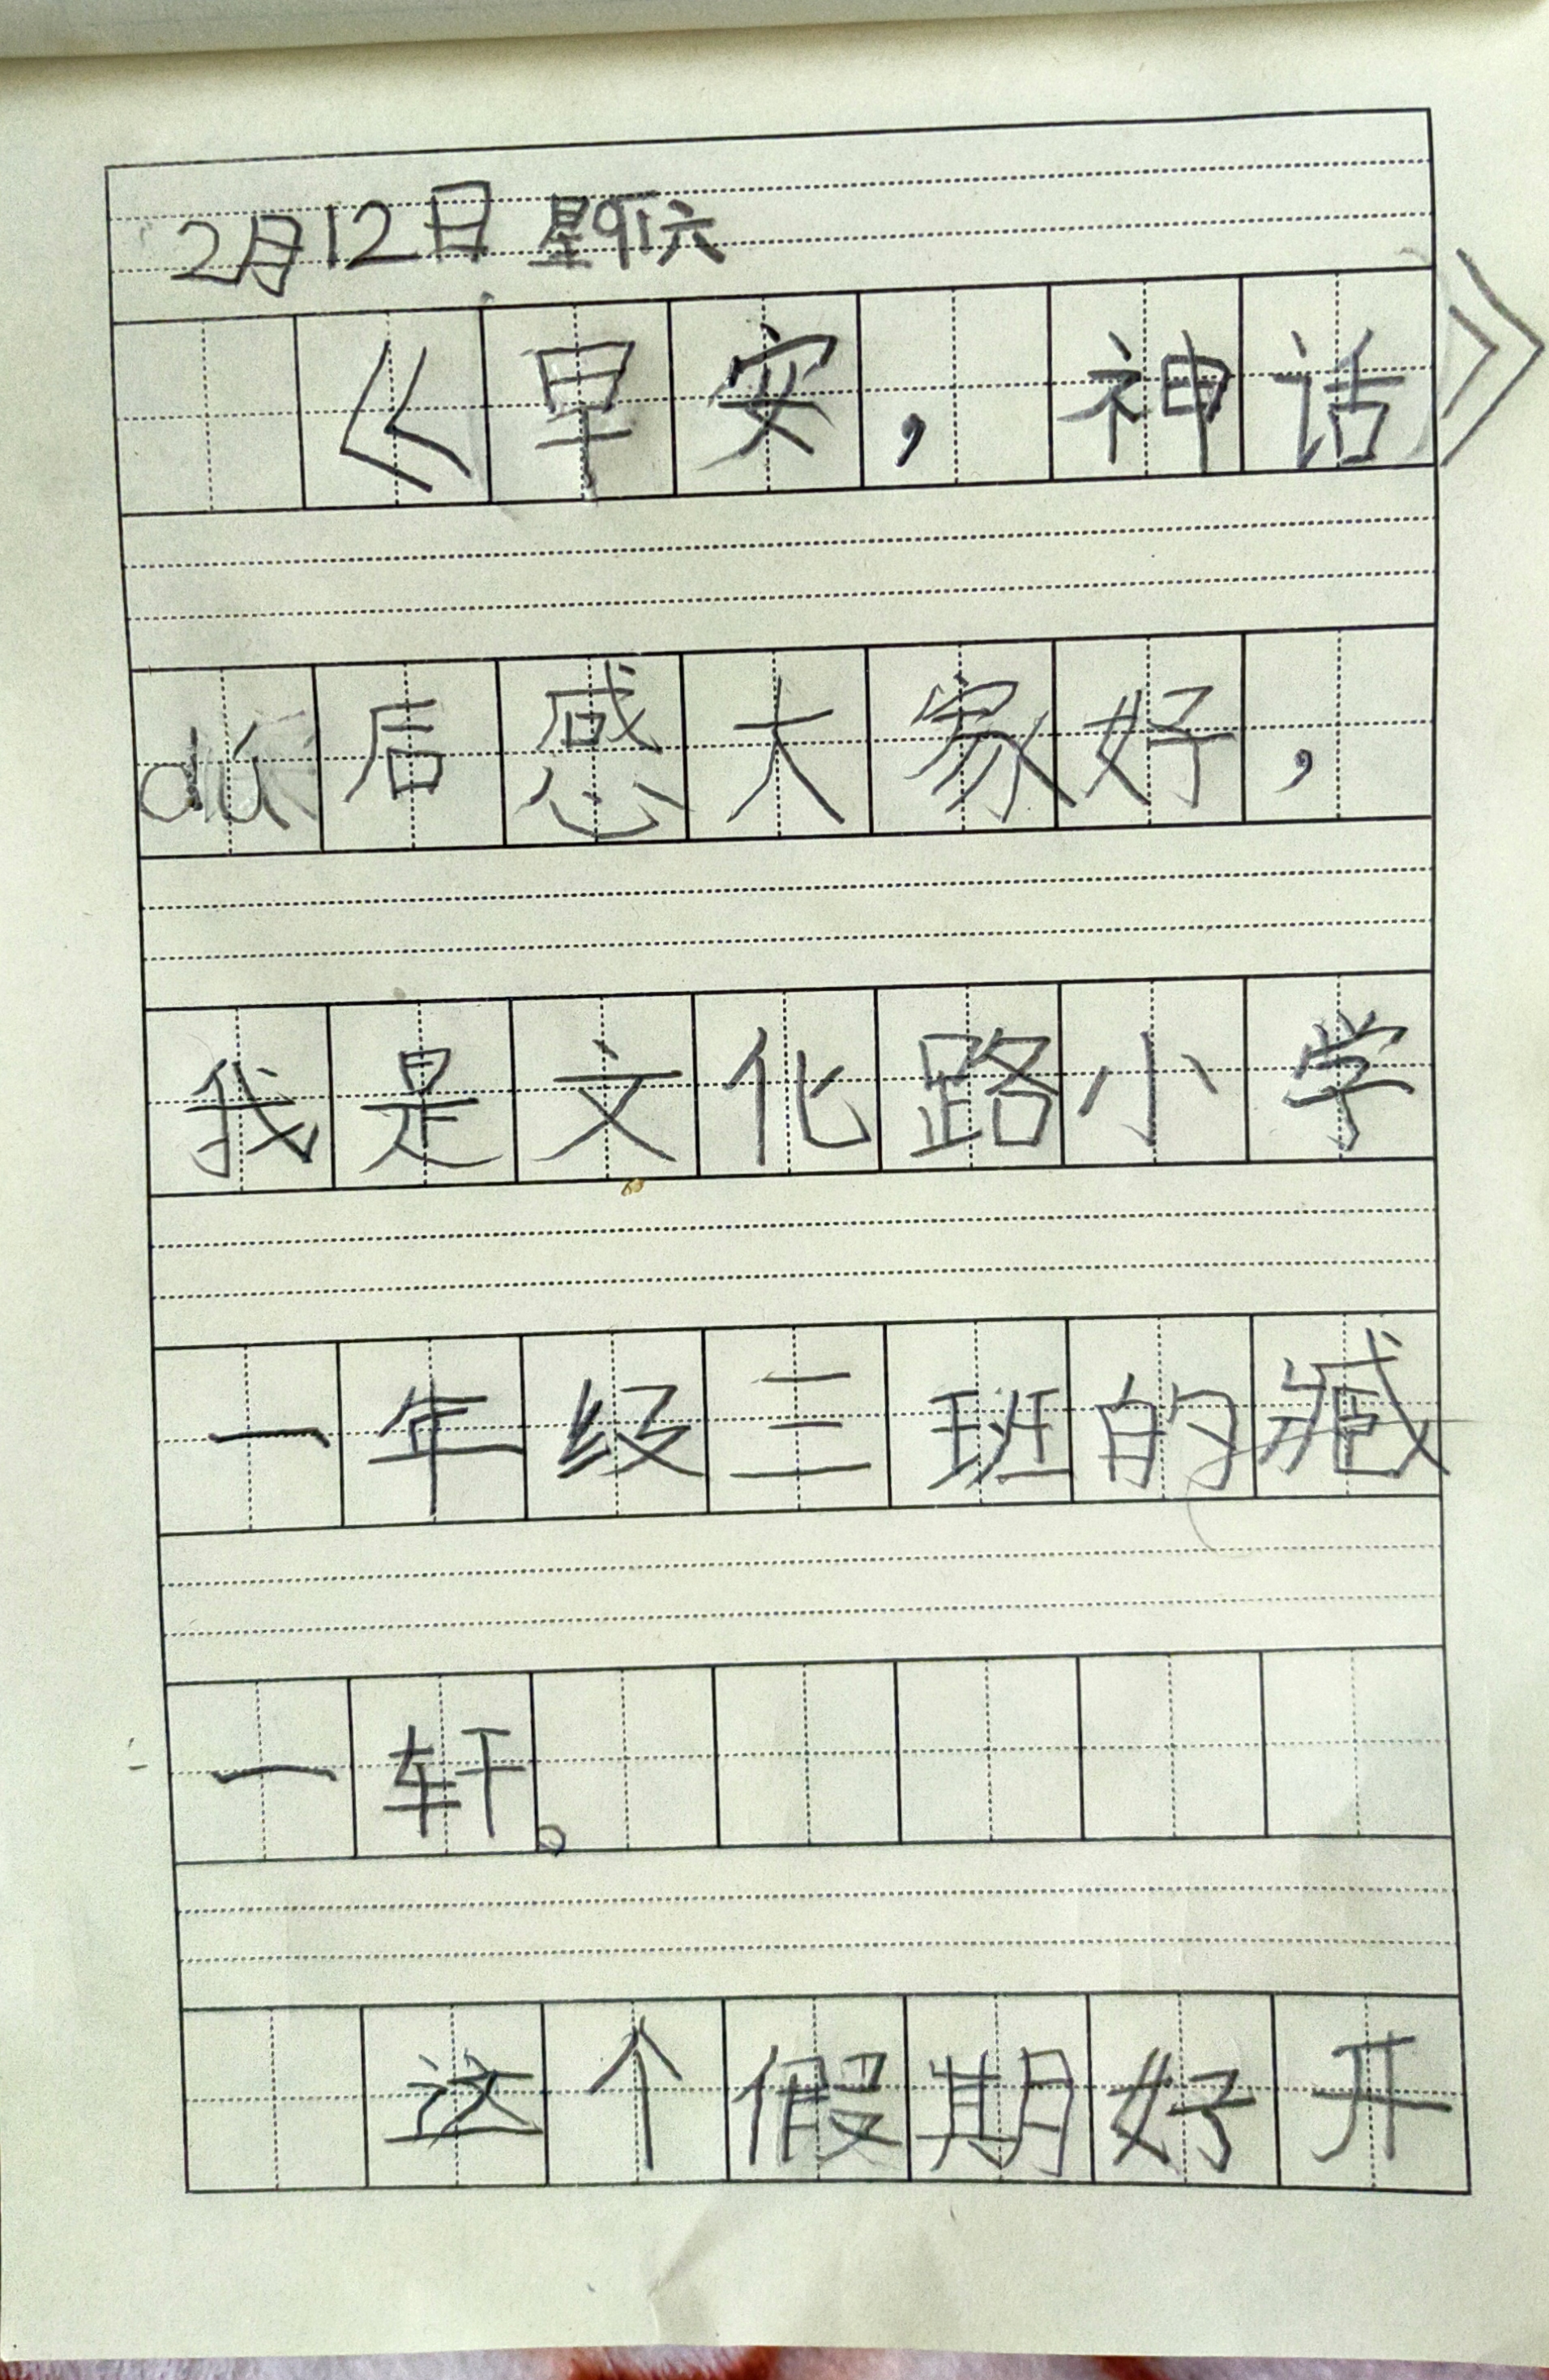 2月12日 星期六
《早安，神话》
dú后感大家好，
我是文化路小学
一年级三班的臧
一轩。
这个假期好开